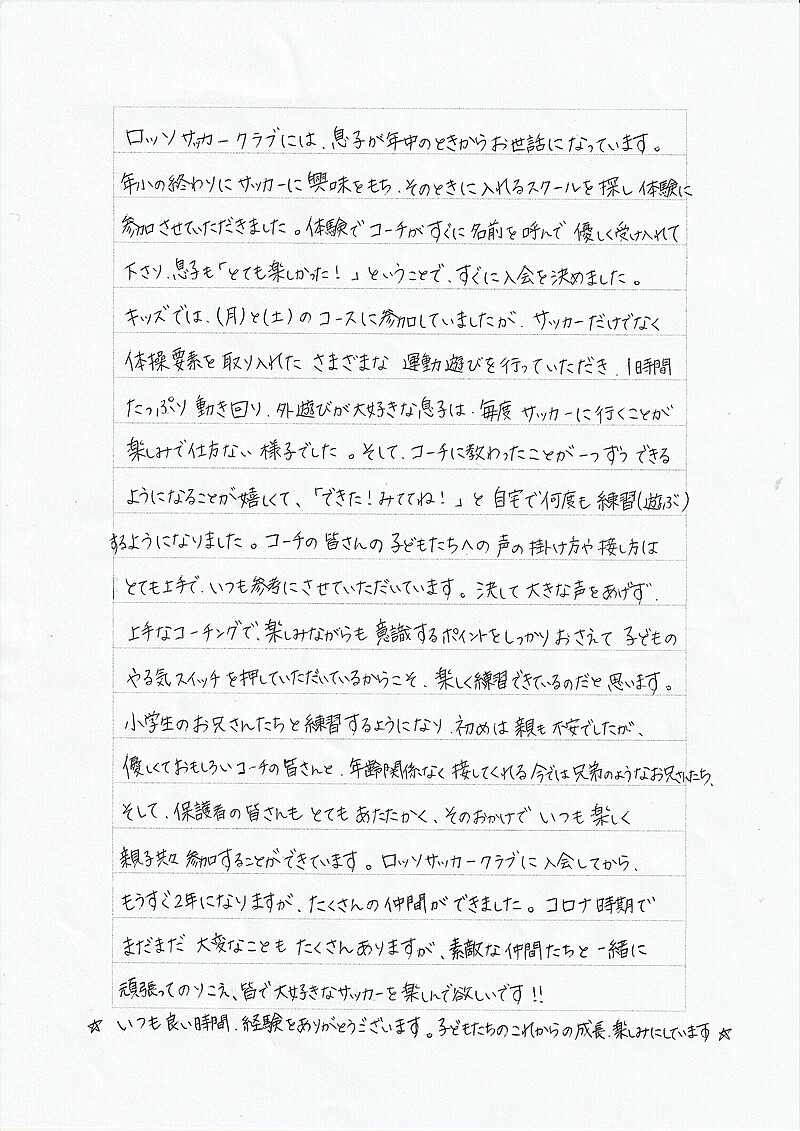 ロッソサッカークラブには、息子が年中のときからお世話になっています。
年小の終わりにサッカーに興味をもち、そのときに入れるスクールを探し体験に
参加させていただきました。体験でコーチがすぐに名前を呼んで優しく受け入れて
下さり、息子も「とても楽しかった！」ということで、すぐに入会を決めました。
キッズでは、(月)と(土)のコースに参加していましたが、サッカーだけでなく
体操要素を取り入れたさまざまな運動遊びを行っていただき、1時間
たっぷり動き回り、外遊びが大好きな息子は、毎度サッカーに行くことが
楽しみで仕方ない様子でした。そして、コーチに教わったことが一つずつできる
ようになることが嬉しくて、「できた！みててね！」と自宅で何度も練習(遊ぶ)
するようになりました。コーチの皆さんの子どもたちへの声の掛け方や接し方は
とても上手で、いつも参考にさせていただいています。決して大きな声をあげず、
上手なコーチングで、楽しみながらも意識するポイントをしっかりおさえて子どもの
やる気スイッチを押していただいているからこそ、楽しく練習できているのだと思います。
小学生のお兄さんたちと練習するようになり、初めは親も不安でしたが、
優しくておもしろいコーチの皆さんと、年齢関係なく接してくれる今では兄弟のようなお兄さんたち、
そして、保護者の皆さんもとてもあたたかく、そのおかげでいつも楽しく
親子共々参加することができています。ロッソサッカークラブに入会してから、
もうすぐ2年になりますが、たくさんの仲間ができました。コロナ時期で
まだまだ大変なこともたくさんありますが、素敵な仲間たちと一緒に
頑張ってのりこえ、皆で大好きなサッカーを楽しんで欲しいです!!
☆ いつも良い時間、経験をありがとうございます。子どもたちのこれからの成長、楽しみにしています☆